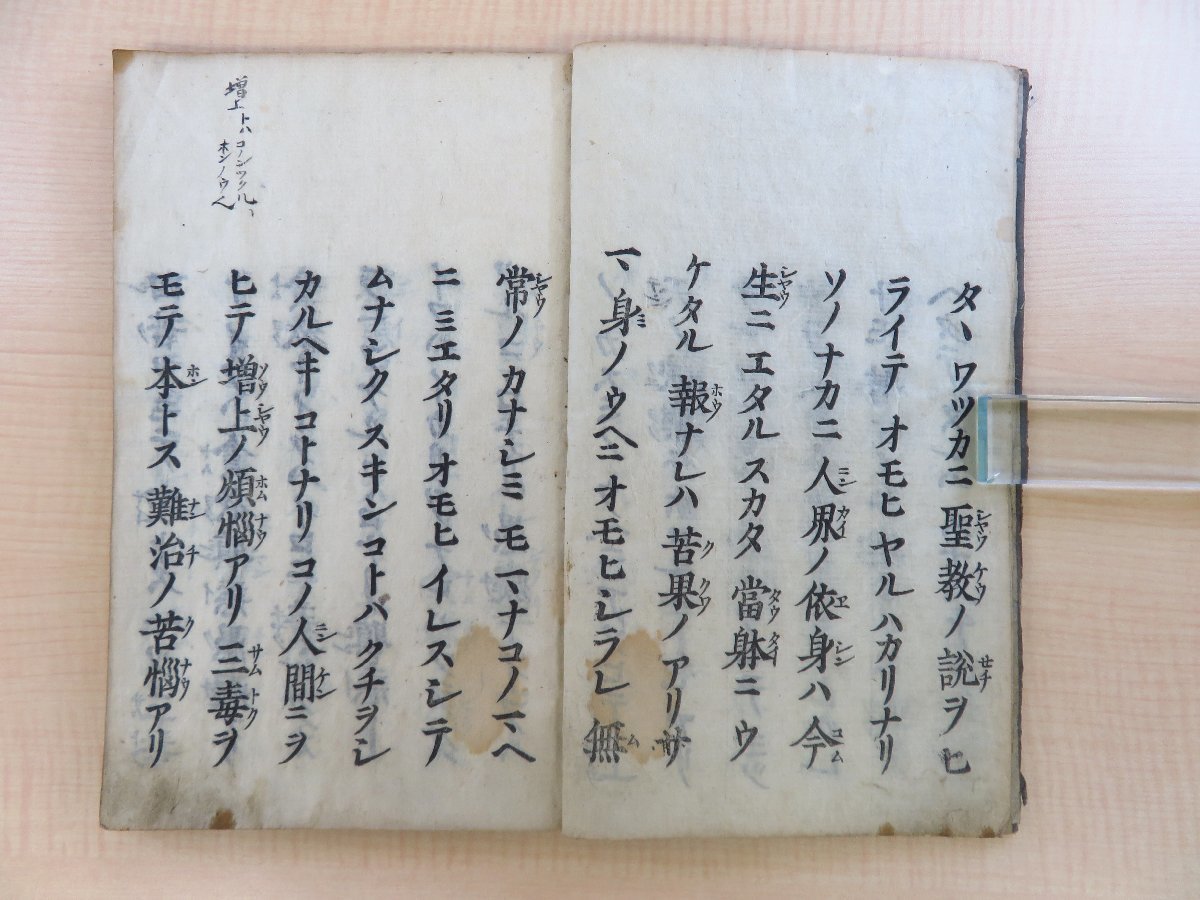 タヽワツカニ聖教ノ說ヲヒ
ライテオモヒヤルハカリナリ
ソノナカニ人界ノ依身ハ今
生ニエタルスカタ當躰ニウ
ケタル報ナレハ苦果ノアリサ
マヽ身ノウヘニオモヒシラレ無
常ノカナシミモマナコノマヘ
ニミエタリオモヒイレスシテ
ムナシクスキンコトハクチヲシ
カルヘキコトナリコノ人間ニヲ
ヒテ増上ノ煩惱アリ三毒ヲ
モテ本トス難治ノ苦惱アリ
増上トハ